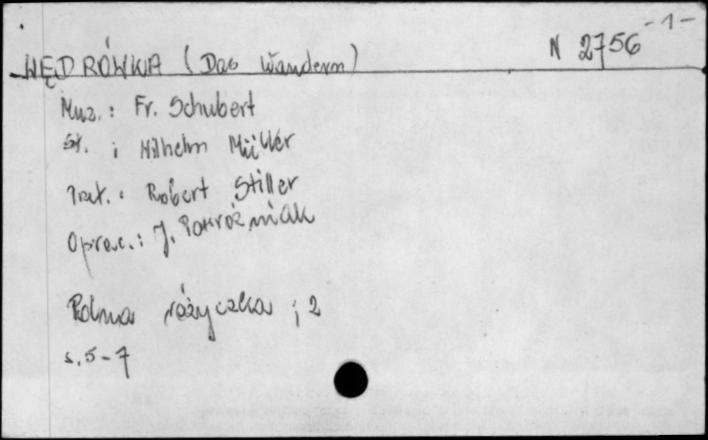 - 1 -
WĘDRÓWKA (Das Wandern) N 2756
Muz.: Fr. Schubert
Sł. : Wilhelm Müller
Tłt. : Robert Stiller
Oprac.: J. Pokróżniak
Polna różyczka ; 2
s. 5-7